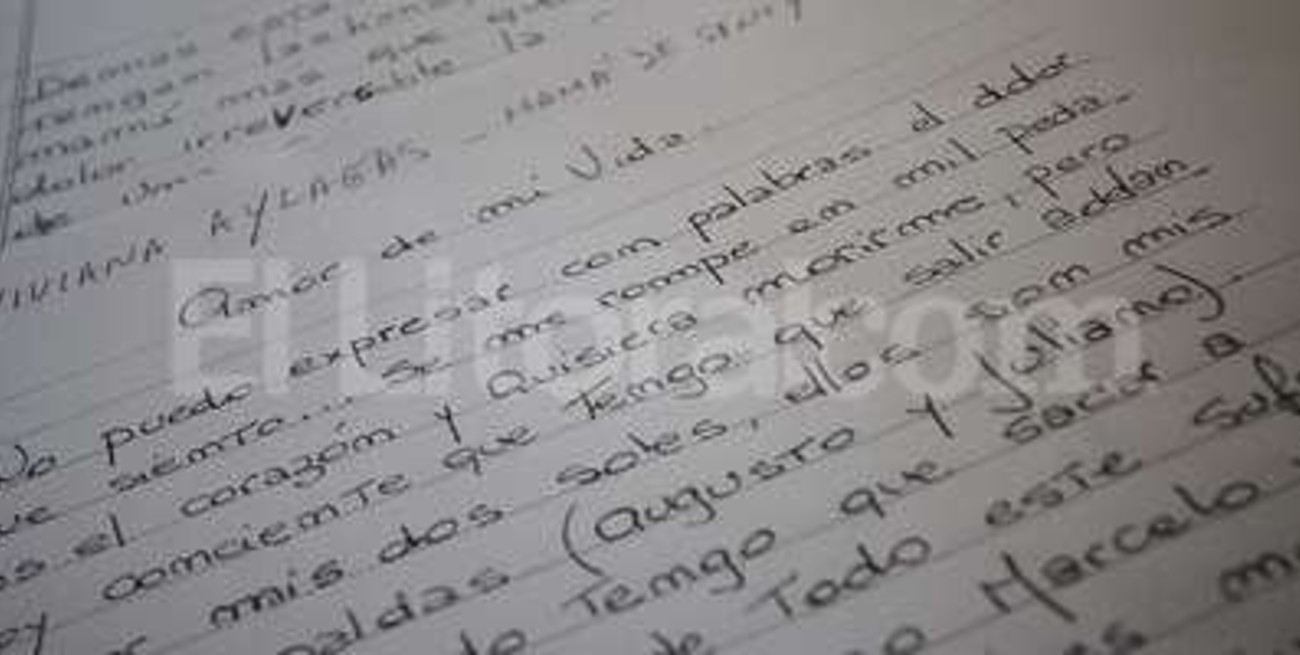 Demas esta
Tengan las
mami mas que
dolor irreversible la
de un
VIVIANA AYLAGAS - MAMÁ DE
Amor de mi Vida
No puedo expresar con palabras el dolor
que siento... Se me rompe en mil peda-
os el corazón y Quisiera morirme, pero
y conciente que Tengo que salir addlan_
mis dos soles, ellos son mis
paldas (augusto y Juliano).
Tengo que sacar a
de Todo este
Marcelo
El Litoral.com